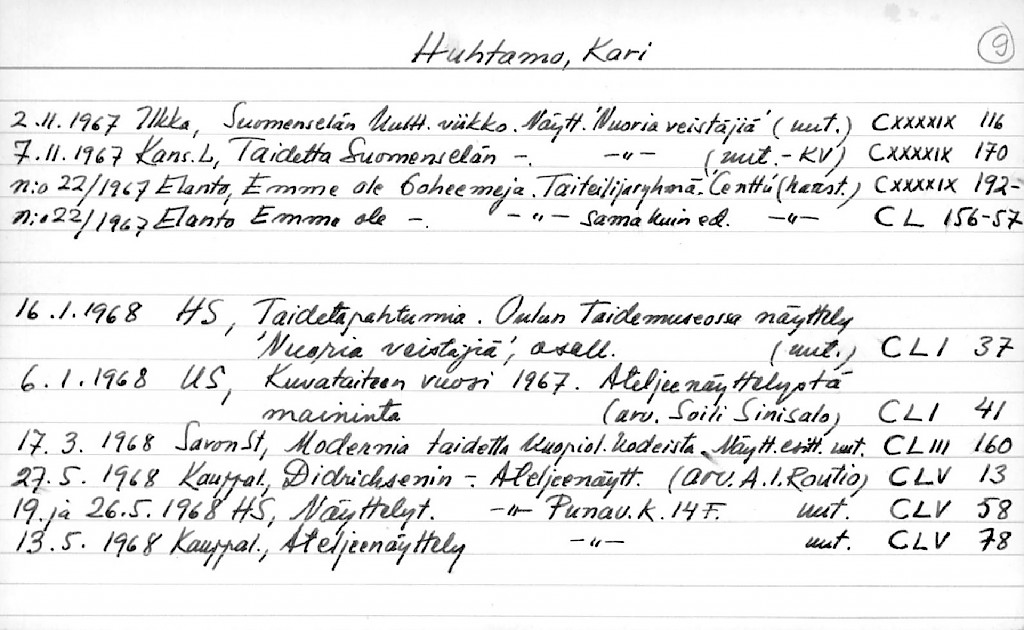 Huhtamo, Kari
9
2.11.1967 Ilkka, Suomenselän kultt. viikko. Näytt. 'Nuoria veistäjiä' (uut.) CXXXXIX 116
7.11.1967 Kans.L, Taidetta Suomenselän -. -"- (uut.-KV) CXXXXIX 170
n:o 22/1967 Elanto, Emme ole boheemeja. Taiteilijaryhmä 'Centtu' (haast.) CXXXXIX 192-
n:o 22/1967 Elanto Emme ole -. -"- sama kuin ed. -"- CL 156-57
16.1.1968 HS, Taidetapahtumia. Oulun Taidemuseossa näyttely
'Nuoria veistäjiä', osall. (uut.) CLI 37
6.1.1968 US, Kuvataiteen vuosi 1967. Ateljeenäyttelystä
maininta (arv. Soili Sinisalo) CLI 41
17.3.1968 SavonSt, Modernia taidetta Kuopiol. kodeista. Näytt. esitt. uut. CLIII 160
27.5.1968 Kauppal., Didrichsenin - Ateljeenäytt. (arv. A.I.Routio) CLV 13
19. ja 26.5.1968 HS, Näyttelyt. -"- Punav.k. 14 F. uut. CLV 58
13.5.1968 Kauppal., Ateljeenäyttely -"- uut. CLV 78